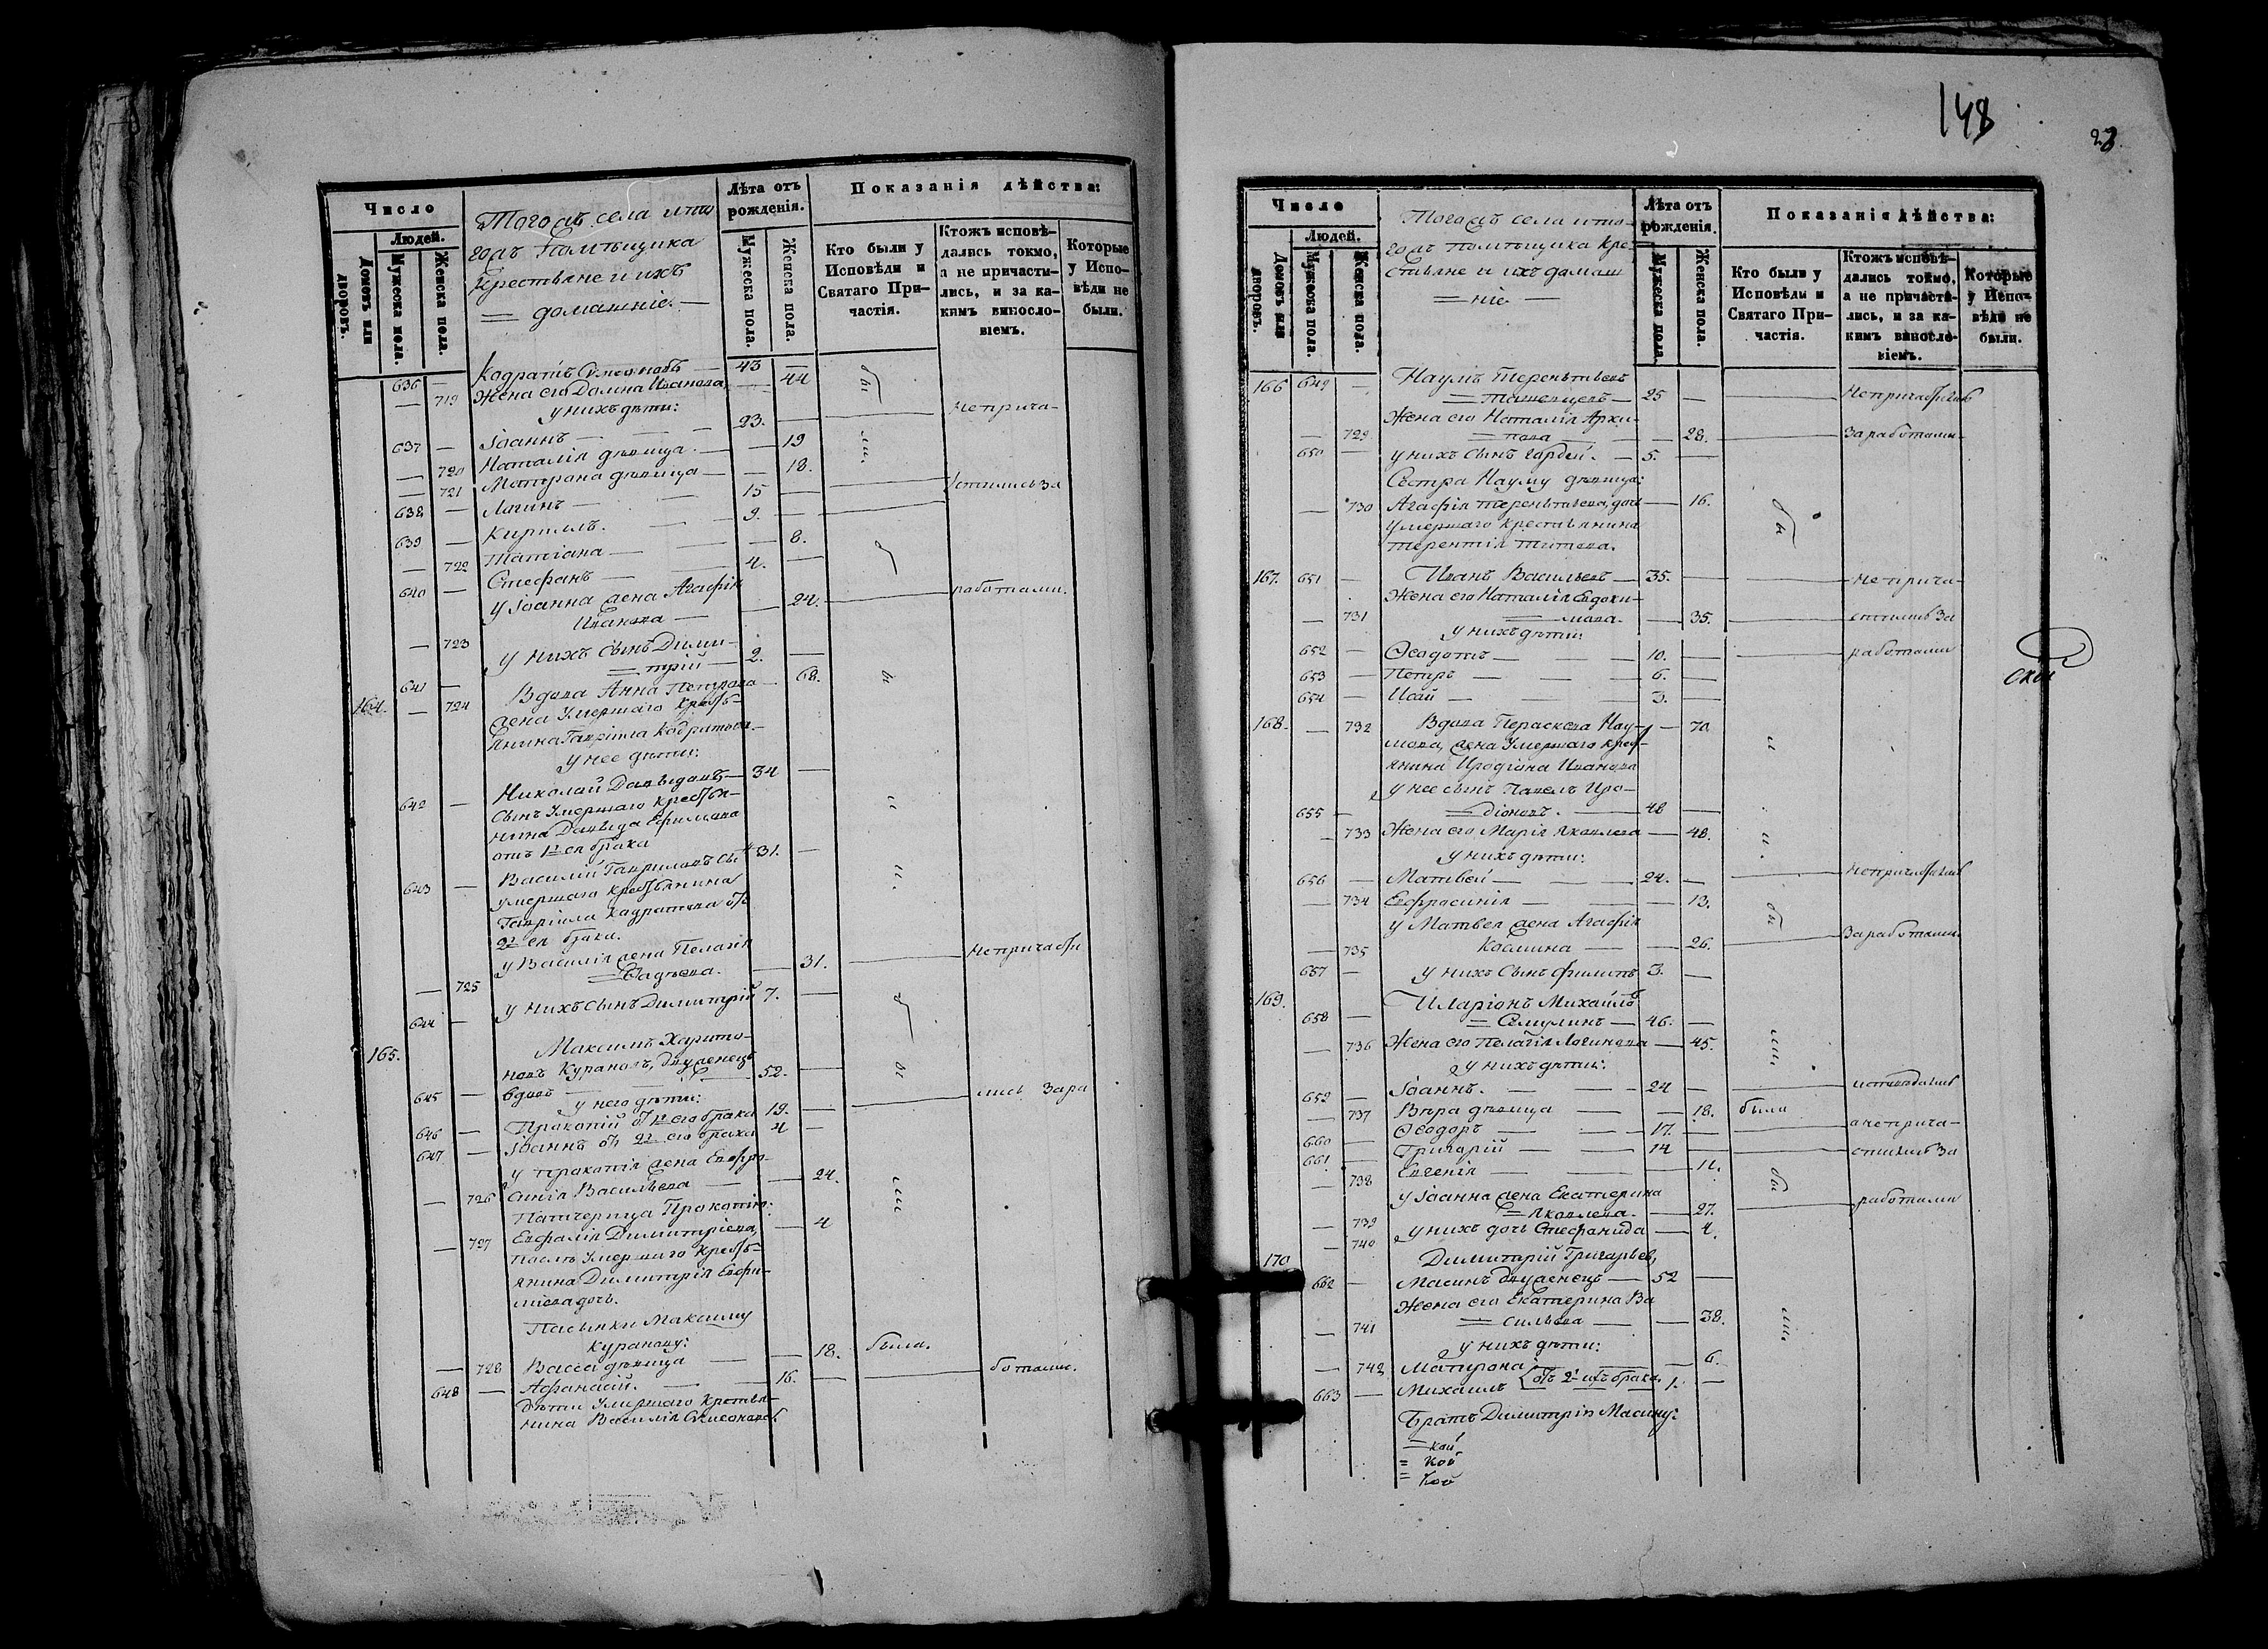 Число
Людей.
Домовъ или дворовъ.
Мужеска пола.
Женска пола.
Тогожъ села и то
гожъ Помѣщика
Крестьяне и ихъ
домашніе.
Лѣта отъ рожденія.
Мужеска пола.
Женска пола.
Показанія дѣйства:
Кто были у Исповѣди и Святаго При-
частія.
Ктожъ исповѣ-
дались токмо,
а не причасти-
лись, и за ка-
кимъ винос­ло-
віемъ.
Которые
у Испо-
вѣди не
были.
636 — Кодратъ Симеоновъ — 43 —
— 719 Жена его Домна Иванова — 44 бы
у нихъ дѣти:
637 — Іоаннъ — 23. — неприча-
— 720 Наталія дѣвица — 19 ли.
— 721 Матрона дѣвица — 18.
638 — Логинъ — 15 — стились за
639 — Кириллъ. — 9. —
— 722 Татіана — 8.
640 — Стефанъ — 4. — б
у Іоанна жена Агафія
— 723 Иванова — 24. работами.
у нихъ сынъ Дими-
641 — трій — 2. —
164. — 724 Вдова Анна Петрова — 68. ы
жена умершаго крест-
янина Гавріила Кодратьева.
у нее дѣти:
642 — Николай Давыдовъ — 34 —
сынъ умершаго крестья-
нина Давыда Ефимова
отъ 1го ея брака
643 — Василій Гавриловъ сы 31. —
умершаго крестьянина
Гавріила Кадратова отъ
2го ея брака.
у Василія жена Пелагія
— 725 Фадѣева. — 31. непричасти
644 — у нихъ сынъ Димитрій 7. — б
165. Максимъ Харито-
новъ Курановъ, двуженецъ
645 — вдовъ — 52. — ы
у него дѣти:
646 — Прокопій отъ 1го его брака 19. — лись зара
647 — Іоаннъ отъ 2го его брака 4 —
у Прокопія жена Евфро-
— 726 синія Васильева — 24. ли
Патчерица Прокопію:
— 727 Евфалія Димитріева, — 4
послѣ умершаго крест-
янина Димитрія Евфи-
міева дочь.
Пасынки Максиму
Куранову:
— 728 Васса дѣвица — 18. была.
648 — Афанасій. — 16. — ботами.
дѣти умершаго крестья-
нина Василія Симеонова
148
28.
Число
Людей.
Домовъ или дворовъ.
Мужеска пола.
Женска пола.
Тогожъ села и то-
гожъ помѣщика кре-
стьяне и ихъ домаш
ніе
Лѣта отъ рожденія.
Мужеска пола.
Женска пола.
Показанія дѣйства:
Кто были у
Исповѣди и
Святаго При-
частія.
Ктожъ исповѣ-
дались токмо,
а не причасти-
лись, и за ка-
кимъ винос­ло-
віемъ.
Которые
у Испо-
вѣди не
были.
166 649 — Наумъ Терентьевъ
25 — непричастились
Жена его Наталія Архи-
— 729 пова — 28. за работами
650 — у нихъ сынъ Гордей. — 5. —
Сестра Науму дѣвица:
— 730 Агафія Терентьева, дочь — 16. бы
умершаго крестьянина
Терентія Титова.
167. 651 — Иванъ Васильевъ — 35. — неприча-
Жена его Наталія Евдоки-
— 731 мова. — 35. стились за
у нихъ дѣти:
652 — Ѳеодотъ — 10. — работами
653 — Петръ — 6. —
654 — Исай — 3. —
168. — 732 Вдова Пераскева Нау- — 70
мова, жена умершаго крест-
янина Иродіона Иванова
у нее сынъ Павелъ Иро-
655 — діоновъ. — 48 —
— 733 Жена его Марія Яковлева — 48.
у нихъ дѣти:
656 — Матвей — 24. — непричастились
— 734 Евфросинія — 13. бы
у Матвея жена Агафія
— 735 Космина — 26. за работами
657 — у нихъ сынъ Филипъ 3. —
169. Иларіонъ Михайловъ
658 — Семулинъ — 46. —
— 736 Жена его Пелагія Логинова — 45. ли
у нихъ дѣти:
652 — Іоаннъ. — 24 — исповѣдались
— 737 Вѣра дѣвица — 18. была
660 — Ѳеодоръ — 17. — а неприча-
661 — Григорій — 14 — стились за
— 738 Евгенія — 11. бы
у Іоанна жена Екатерина
— 739 Яковлева. — 27. работами
— 740 у нихъ дочь Стефанида — 4.
170 Димитрій Григорьевъ,
662 — Масинъ двуженецъ — 52 —
Жена его Екатерина Ва
— 741 сильева — 38. ли.
у нихъ дѣти:
— 742 Матрона — 6.
663 — Михаилъ отъ 2го ихъ брака 1. —
Братъ Димитрію Масину:
кой
кой
кой